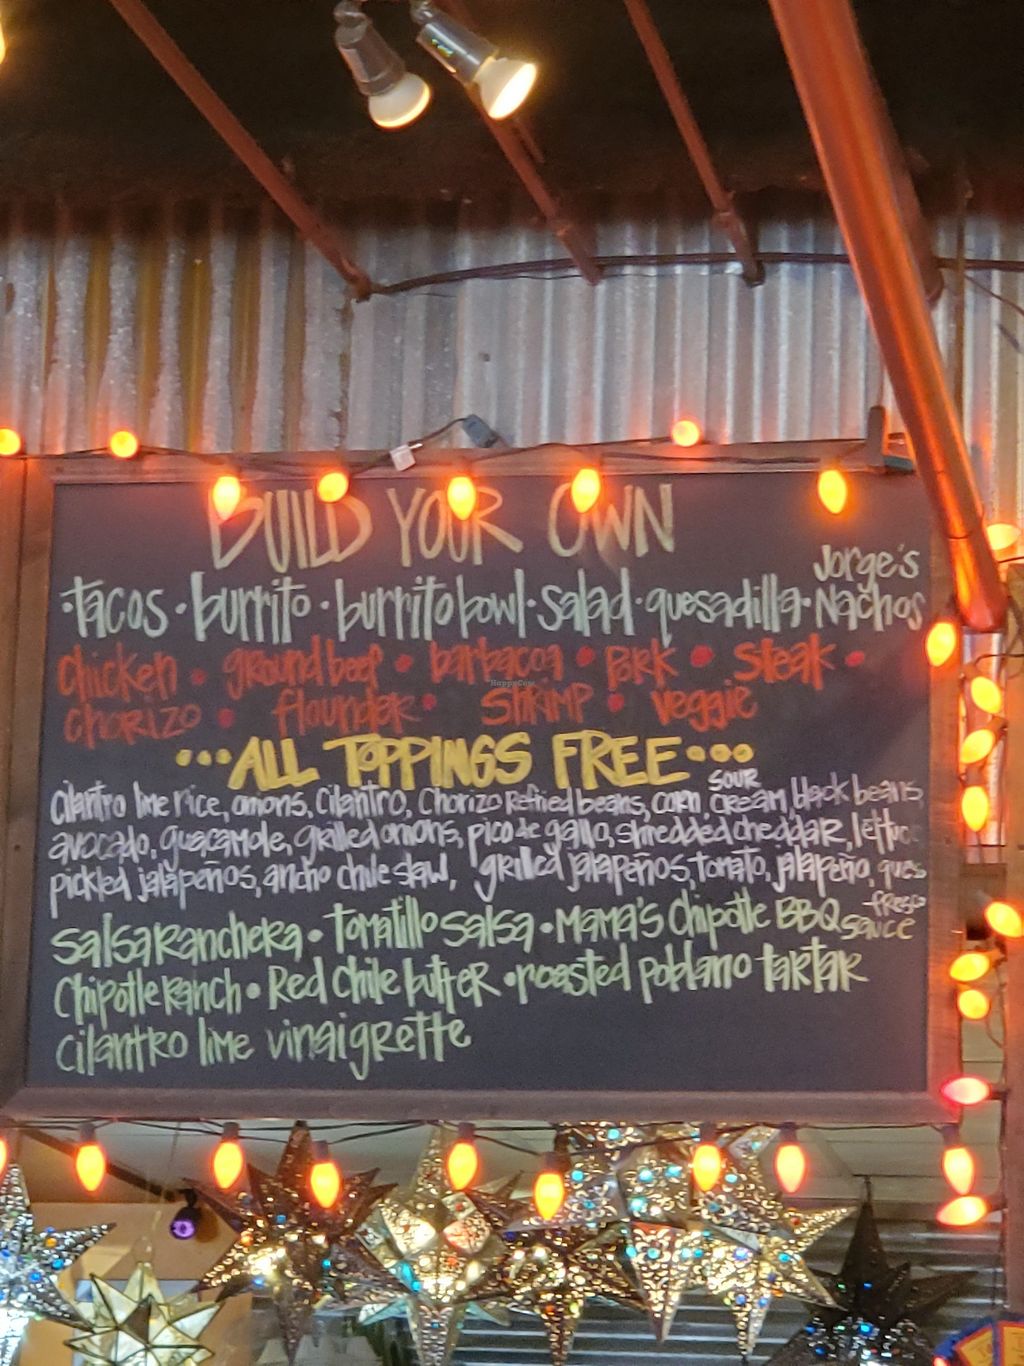 BUILD YOUR OWN
Jorge's
•tacos • burrito • burrito bowl • salad • quesadilla • Nachos
chicken • ground beef • barbacoa • PORK • steak •
chorizo • flounder • SHRIMP • veggie
HappyCow
...ALL TOPPINGS FREE...
cilantro lime rice, onions, cilantro, chorizo refried beans, corn, sour cream, black beans,
avocado, guacamole, grilled onions, pico de gallo, shredded cheddar, lettuc
pickled jalapeños, ancho chile slaw, grilled jalapeños, tomato, jalapeño, ques
fresco
salsa Ranchera • Tomatillo salsa • Mama's chipotle BBQ sauce
Chipotle Ranch • Red Chile butter • roasted poblano tartar
cilantro lime vinaigrette